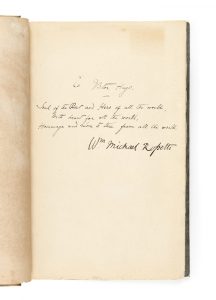 to Victor Hugo.
Soul of the Poet and Hero of all the world
With heart for all the world,
Homage and love to thee from all the world.
Wm Michael Rossetti